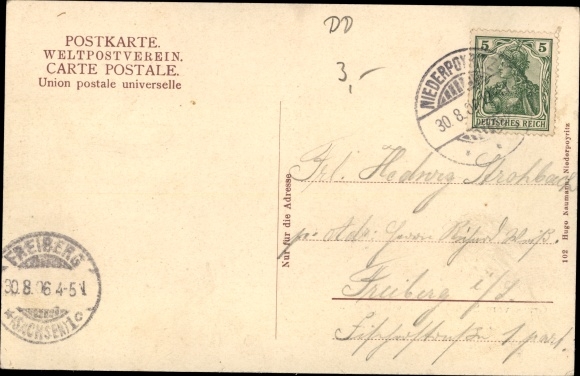 DD
3,-
POSTKARTE.
WELTPOSTVEREIN.
CARTE POSTALE.
Union postale universelle
5 5
DEUTSCHES REICH
NIEDERPOYRITZ
30.8.
Nur für die Adresse
Frl. Hedwig Strohbach
Herrn Richard Weiß.
Freiberg i/S.
1 part.
102 Hugo Naumann, Niederpoyritz
FREIBERG
30.8.06.4-5N
*(SACHSEN)1c